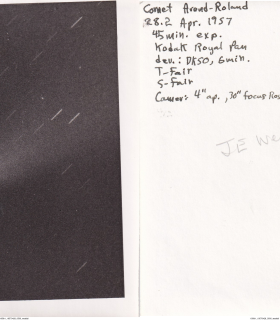 Comet Arend-Roland
28.2 Apr. 1957
45 min. exp.
Kodak Royal Pan
dev.: DK50, 6min.
T-Fair
S-Fair
Camer: 4" ap., 30" focus Ros
JE We